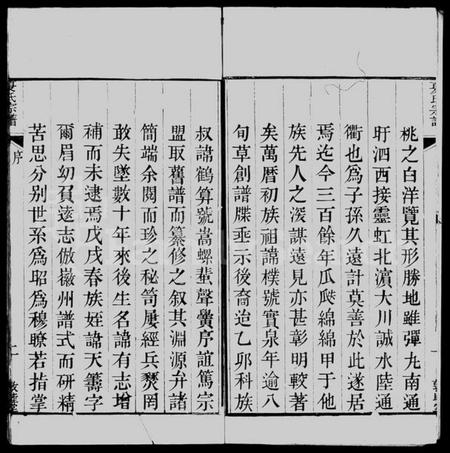 桃之白洋覽其形勝地雖彈丸南通
盱泗西接靈虹北濱大川誠水陸通
衢也為子孫久遠計莫善於此遂居
焉迄今三百餘年瓜瓞綿綿甲于他
族先人之深謀遠見亦甚彰明較著
矣萬曆初族祖諱樸號實泉年逾八
旬草創譜牒垂示後裔迨乙卯科族
叔諱鶴算號嵩螺蜚聲黌序誼篤宗
盟取舊譜而纂修之叙其淵源弁諸
簡端余閱而珍之秘笥屢經兵燹罔
敢失墜數十年來後生名諱有志增
補而未逮焉戊戌春族姪諱天籌字
爾眉幼負遠志倣徽州譜式而研精
苦思分别世系為昭為穆瞭若指掌
氏宗譜
序
二